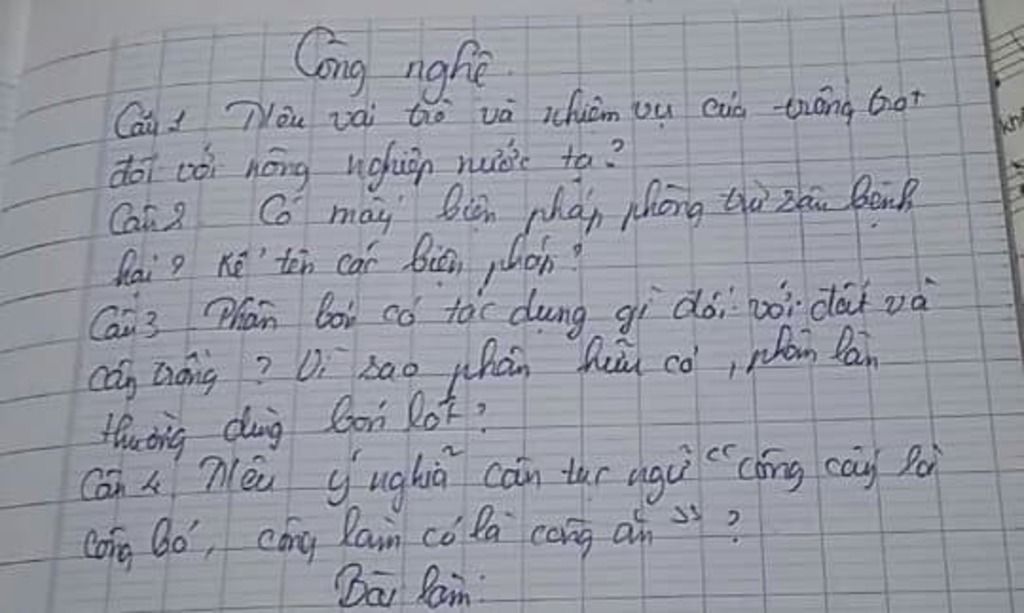 Công nghệ
Câu 1 Nêu vai trò và nhiệm vụ của trồng trọt
đối với nông nghiệp nước ta?
Câu 2 Có mấy biện pháp phòng trừ sâu bệnh
hại? Kể tên các biện pháp?
Câu 3 Phân bón có tác dụng gì đối với đất và
cây trồng? Vì sao phân hữu cơ, phân lân
thường dùng bón lót?
Câu 4 Nêu ý nghĩa câu tục ngữ "công cấy là
công bỏ, công làm cỏ là công ăn"?
Bài làm: